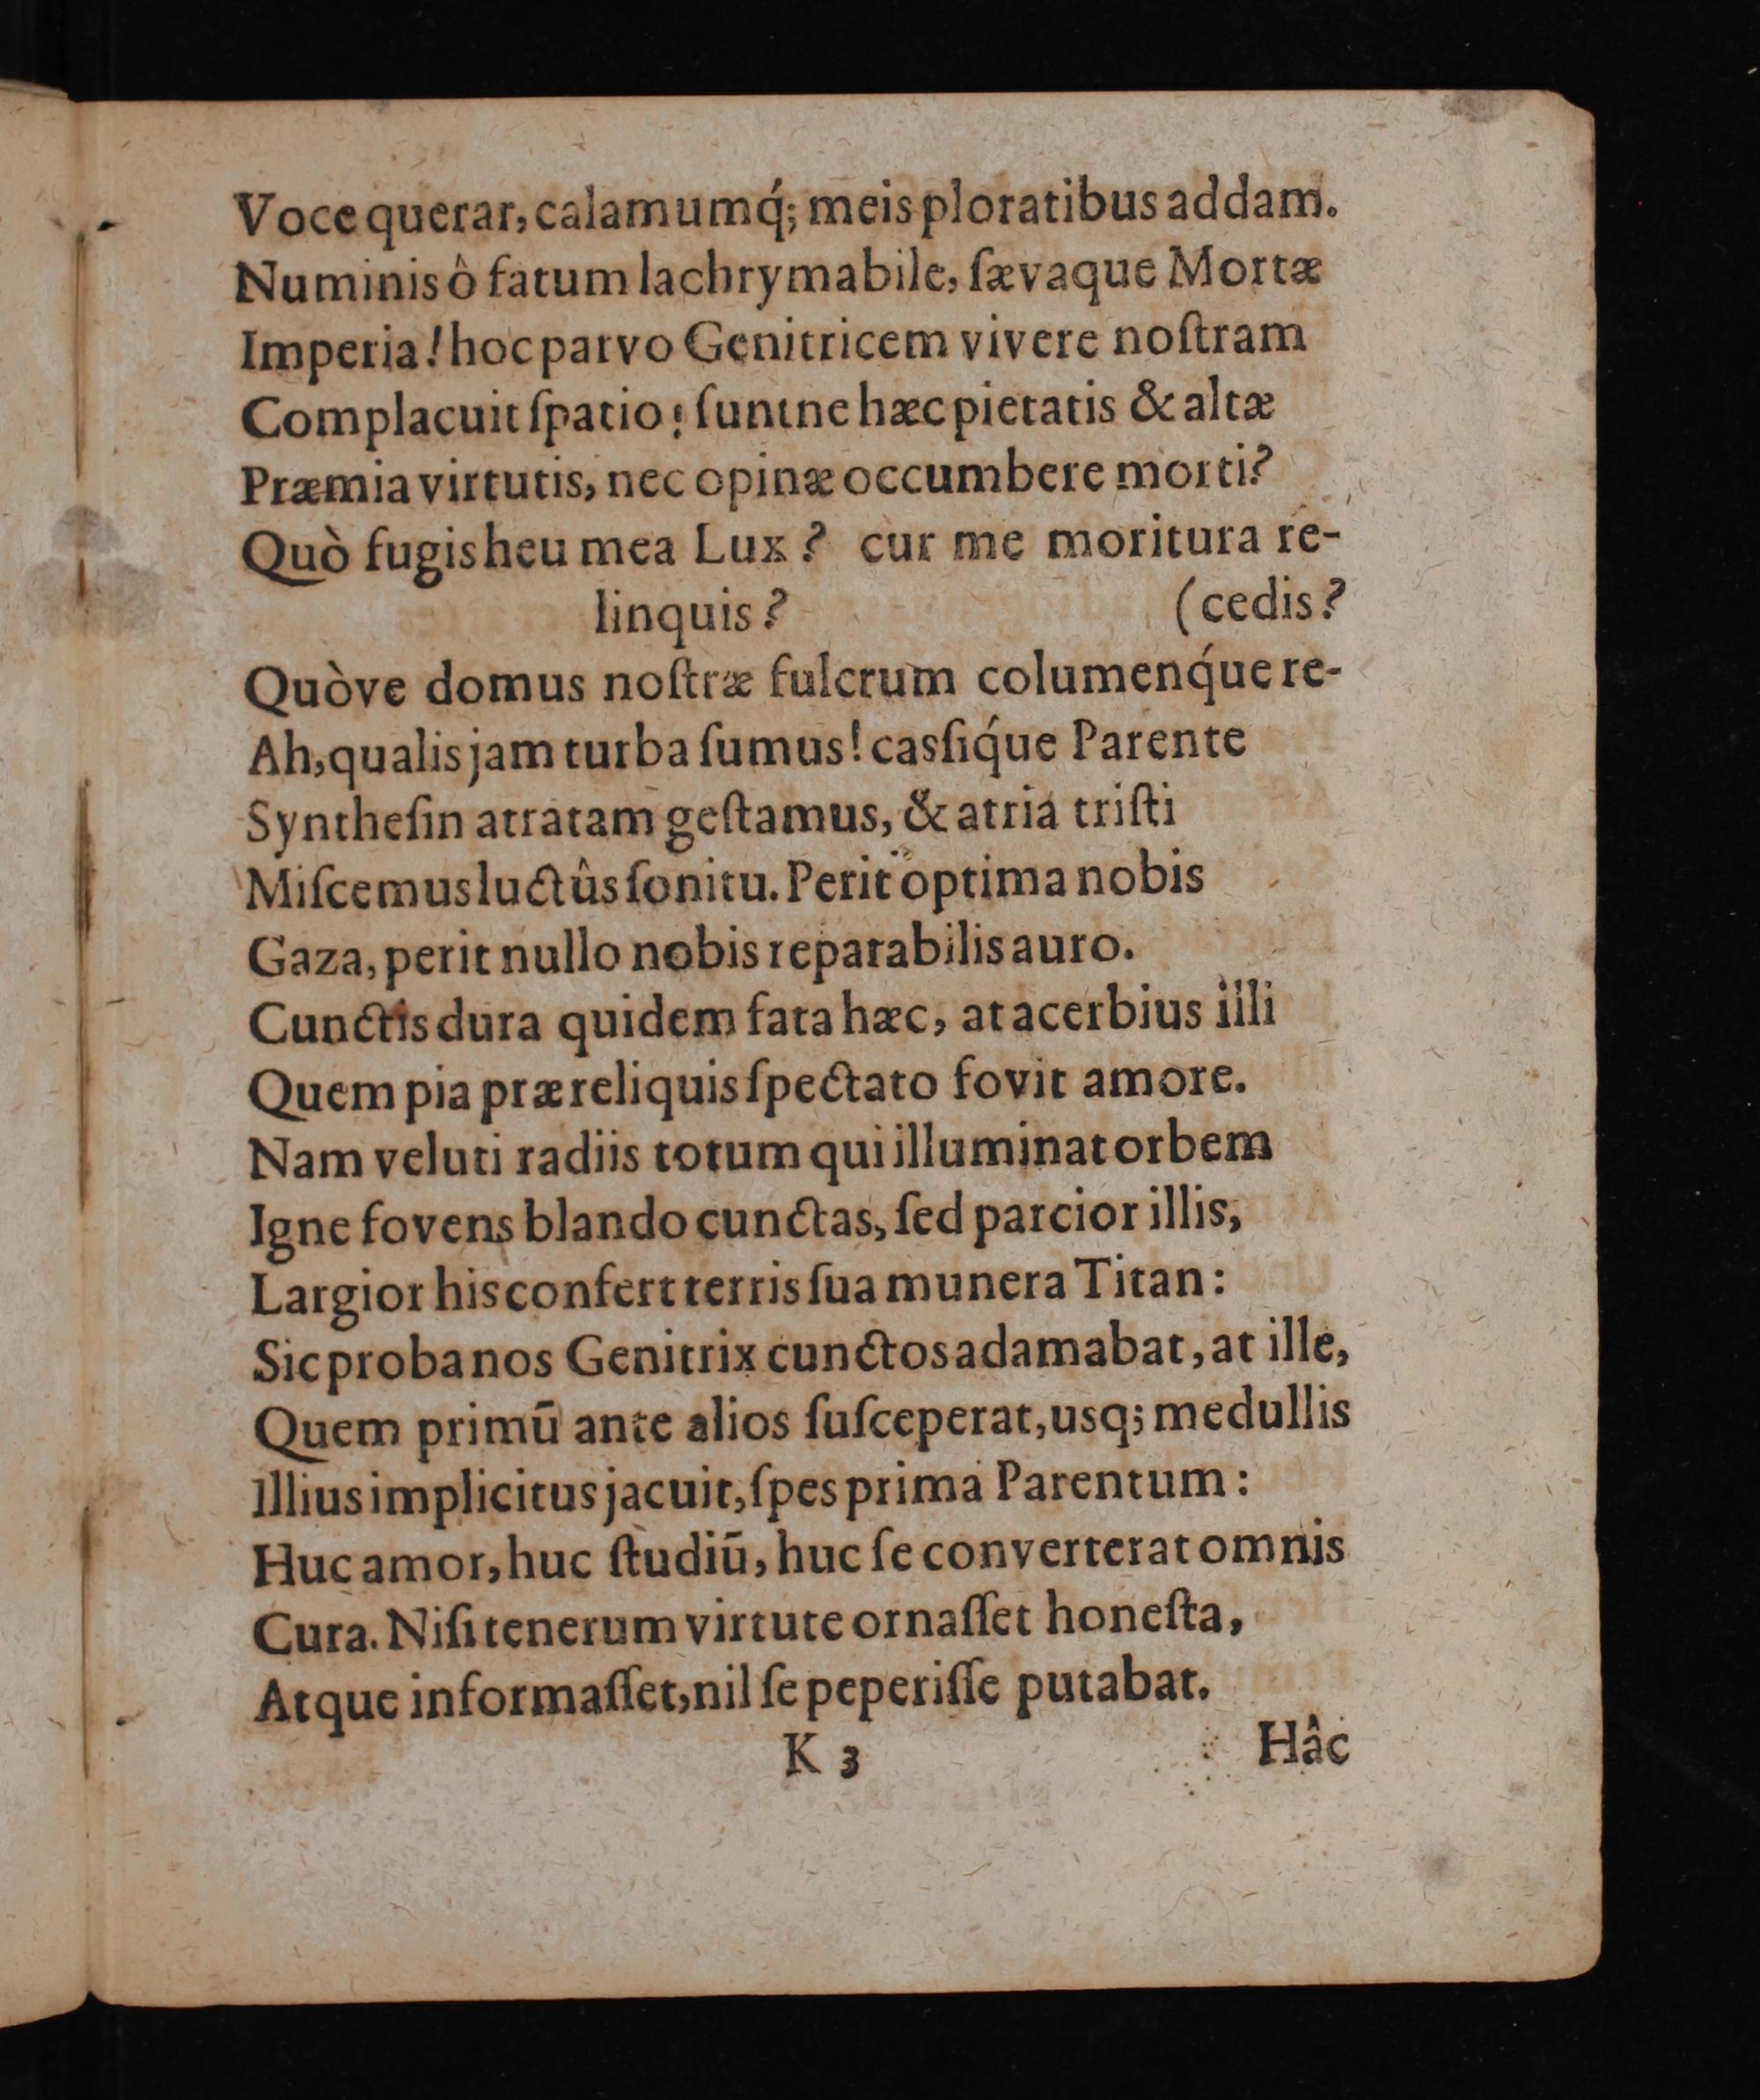 Voce querar, calamumq́; meis ploratibus addam.
Numinis ô fatum lachrymabile, ſævaque Mortæ
Imperia! hoc parvo Genitricem vivere noſtram
Complacuit ſpatio? ſuntne hæc pietatis & altæ
Præmia virtutis, nec opinæ occumbere morti?
Quò fugis heu mea Lux? cur me moritura re-
linquis? (cedis?
Quòve domus noſtræ fulcrum columenq́ue re-
Ah, qualis jam turba ſumus! casſiq́ue Parente
Syntheſin atratam geſtamus, & atria triſti
Miſcemus luctûs ſonitu. Perit optima nobis
Gaza, perit nullo nobis reparabilis auro.
Cunctis dura quidem fata hæc, at acerbius illi
Quem pia præ reliquis ſpectato fovit amore.
Nam veluti radiis totum qui illuminat orbem
Igne fovens blando cunctas, ſed parcior illis,
Largior his confert terris ſua munera Titan:
Sic proba nos Genitrix cunctos adamabat, at ille,
Quem primū ante alios ſuſceperat, usq; medullis
Illius implicitus jacuit, ſpes prima Parentum:
Huc amor, huc ſtudiū, huc ſe converterat omnis
Cura. Niſi tenerum virtute ornaſſet honeſta,
Atque informaſſet, nil ſe peperiſſe putabat.
K 3 Hâc